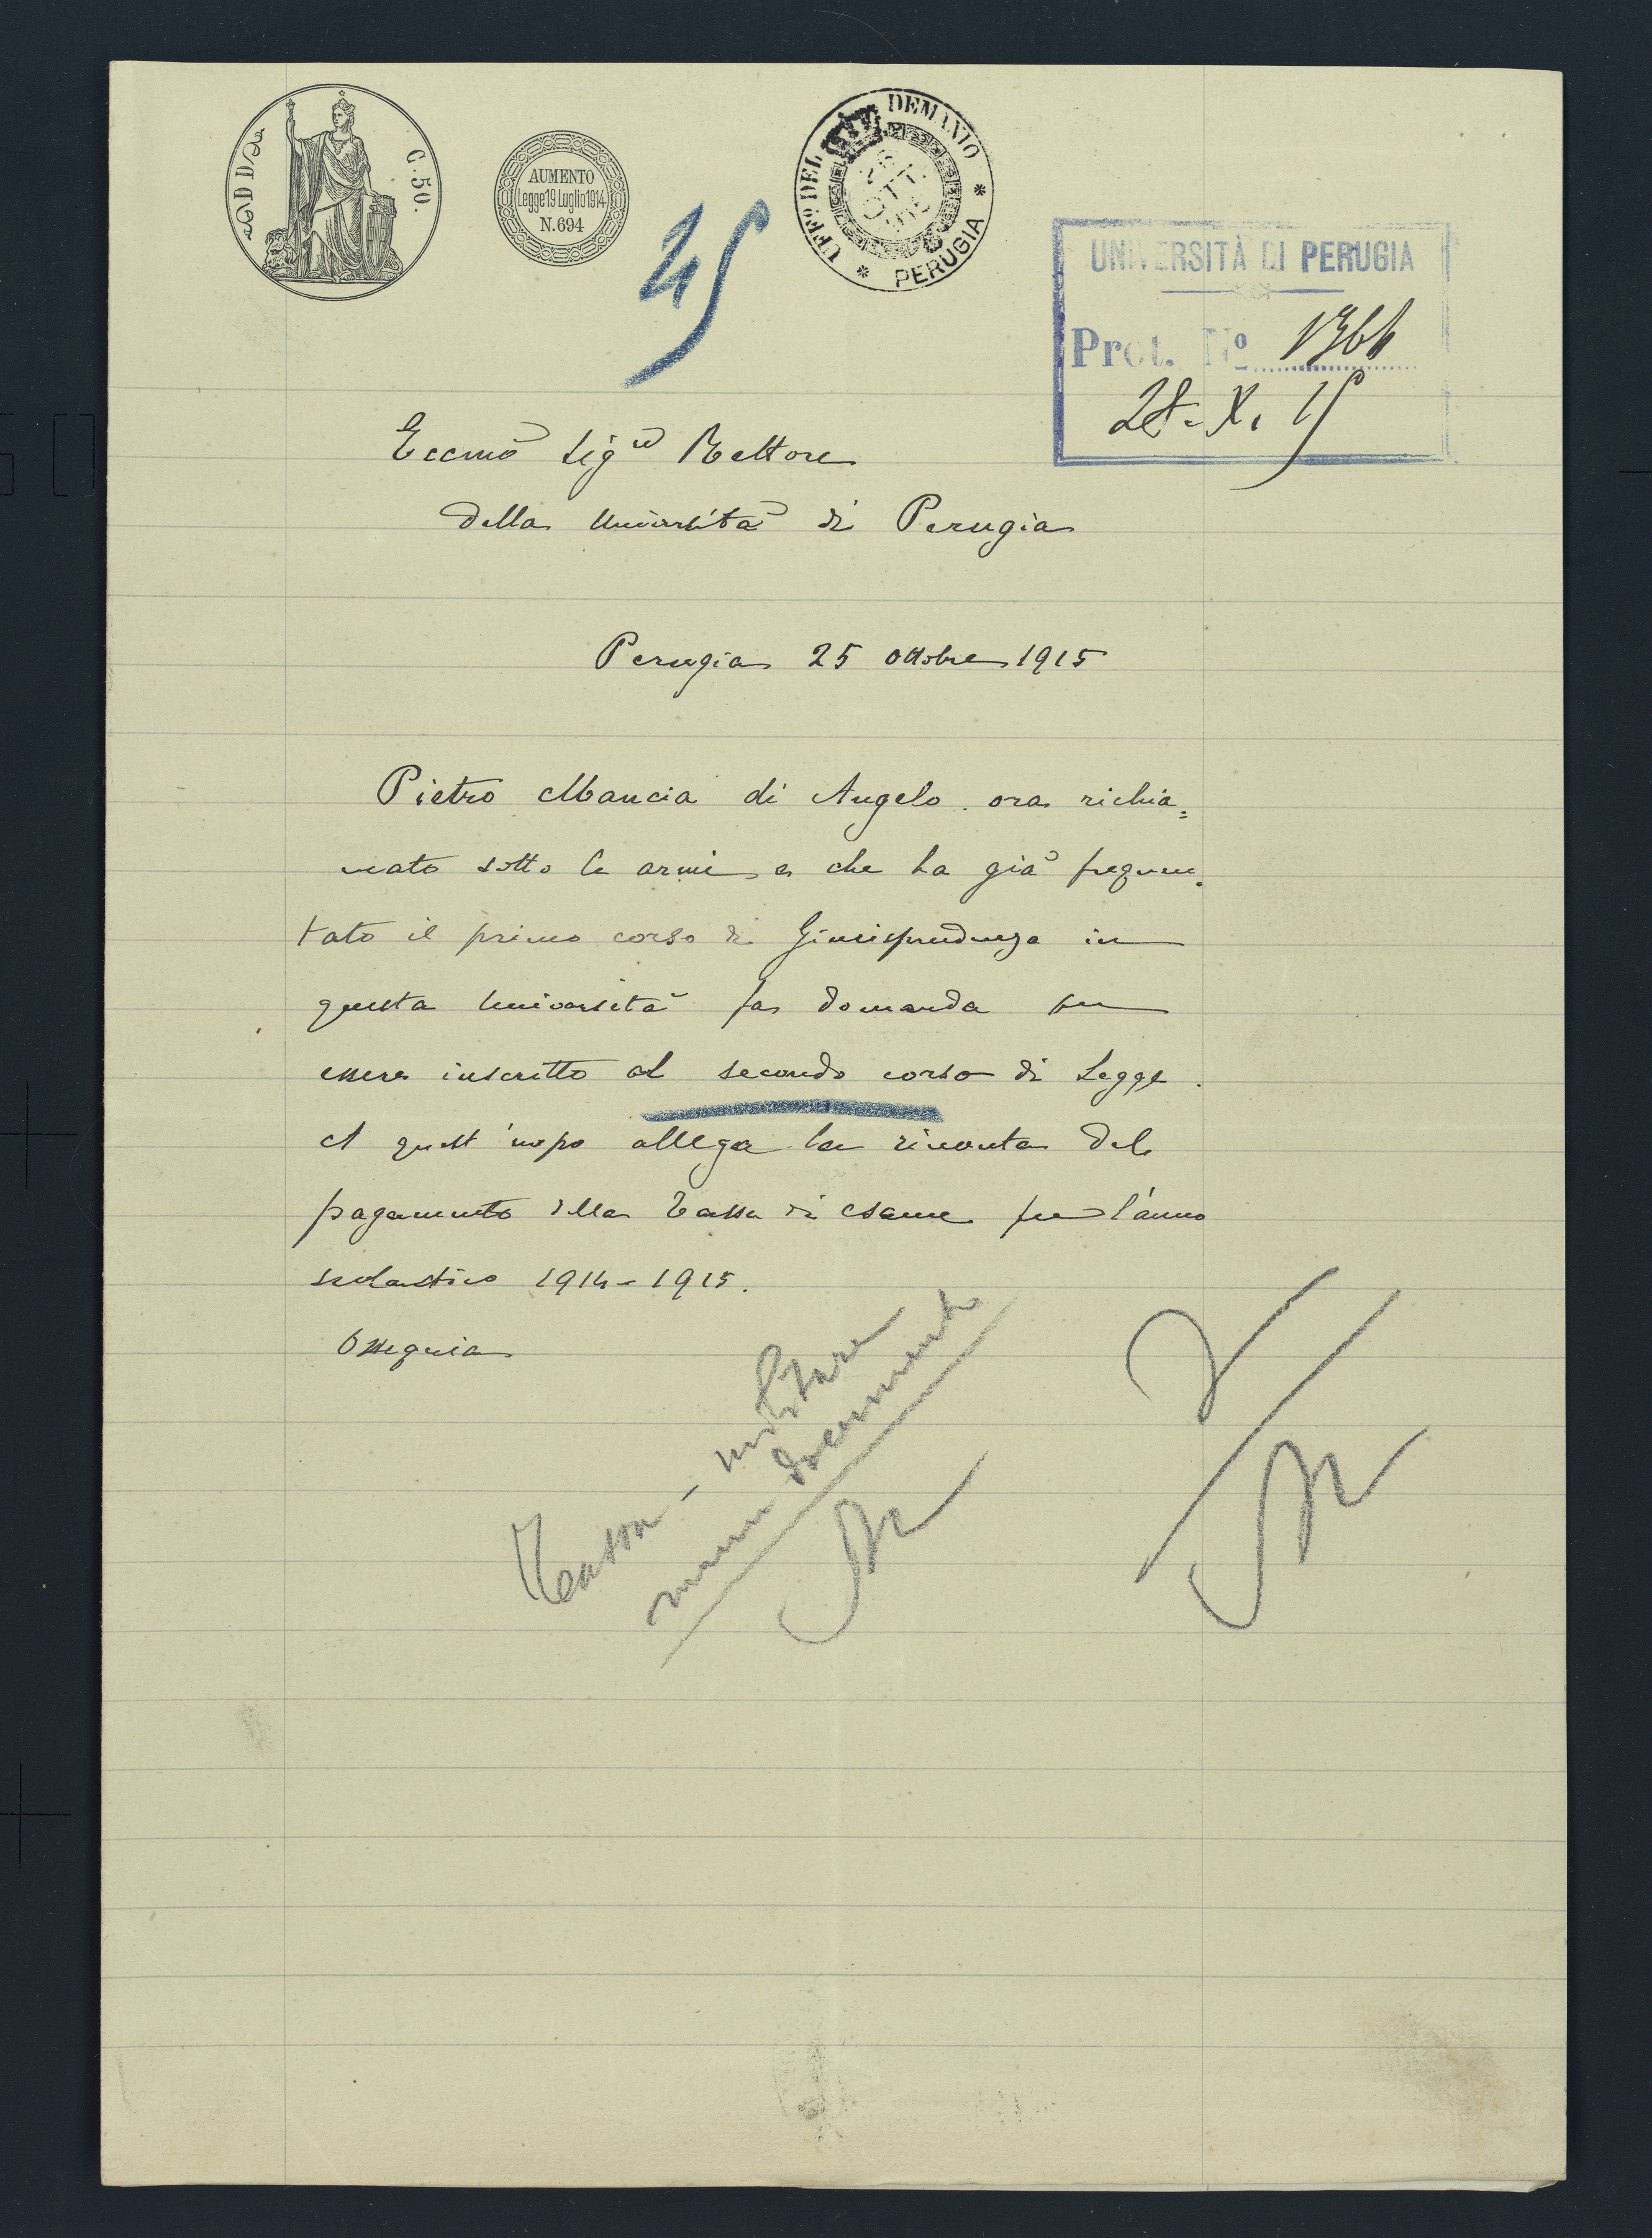 C. 50.
AUMENTO
Legge 19 Luglio 1914
N. 694
UFFº DEL DEMANIO
OTT.
* PERUGIA *
UNIVERSITÀ DI PERUGIA
Prot. Nº 1366
28. X. 15
45
Eccmo Sigr Rettore
della Università di Perugia
Perugia 25 ottobre 1915
Pietro Mancia di Angelo ora richia=
mato sotto le armi e che ha già frequen=
tato il primo corso di Giurisprudenza in
questa Università fa domanda per
essere inscritto al secondo corso di Legge.
A quest'uopo allega la ricevuta del
pagamento della tassa di esame per l'anno
scolastico 1914-1915.
Ossequia
militare
documento